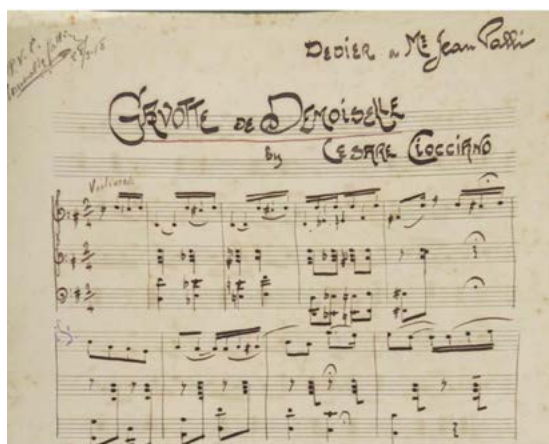 DEDIER a Me Jean Palli
GAVOTTE DE DEMOISELLE
by CESARE CIOCCIANO